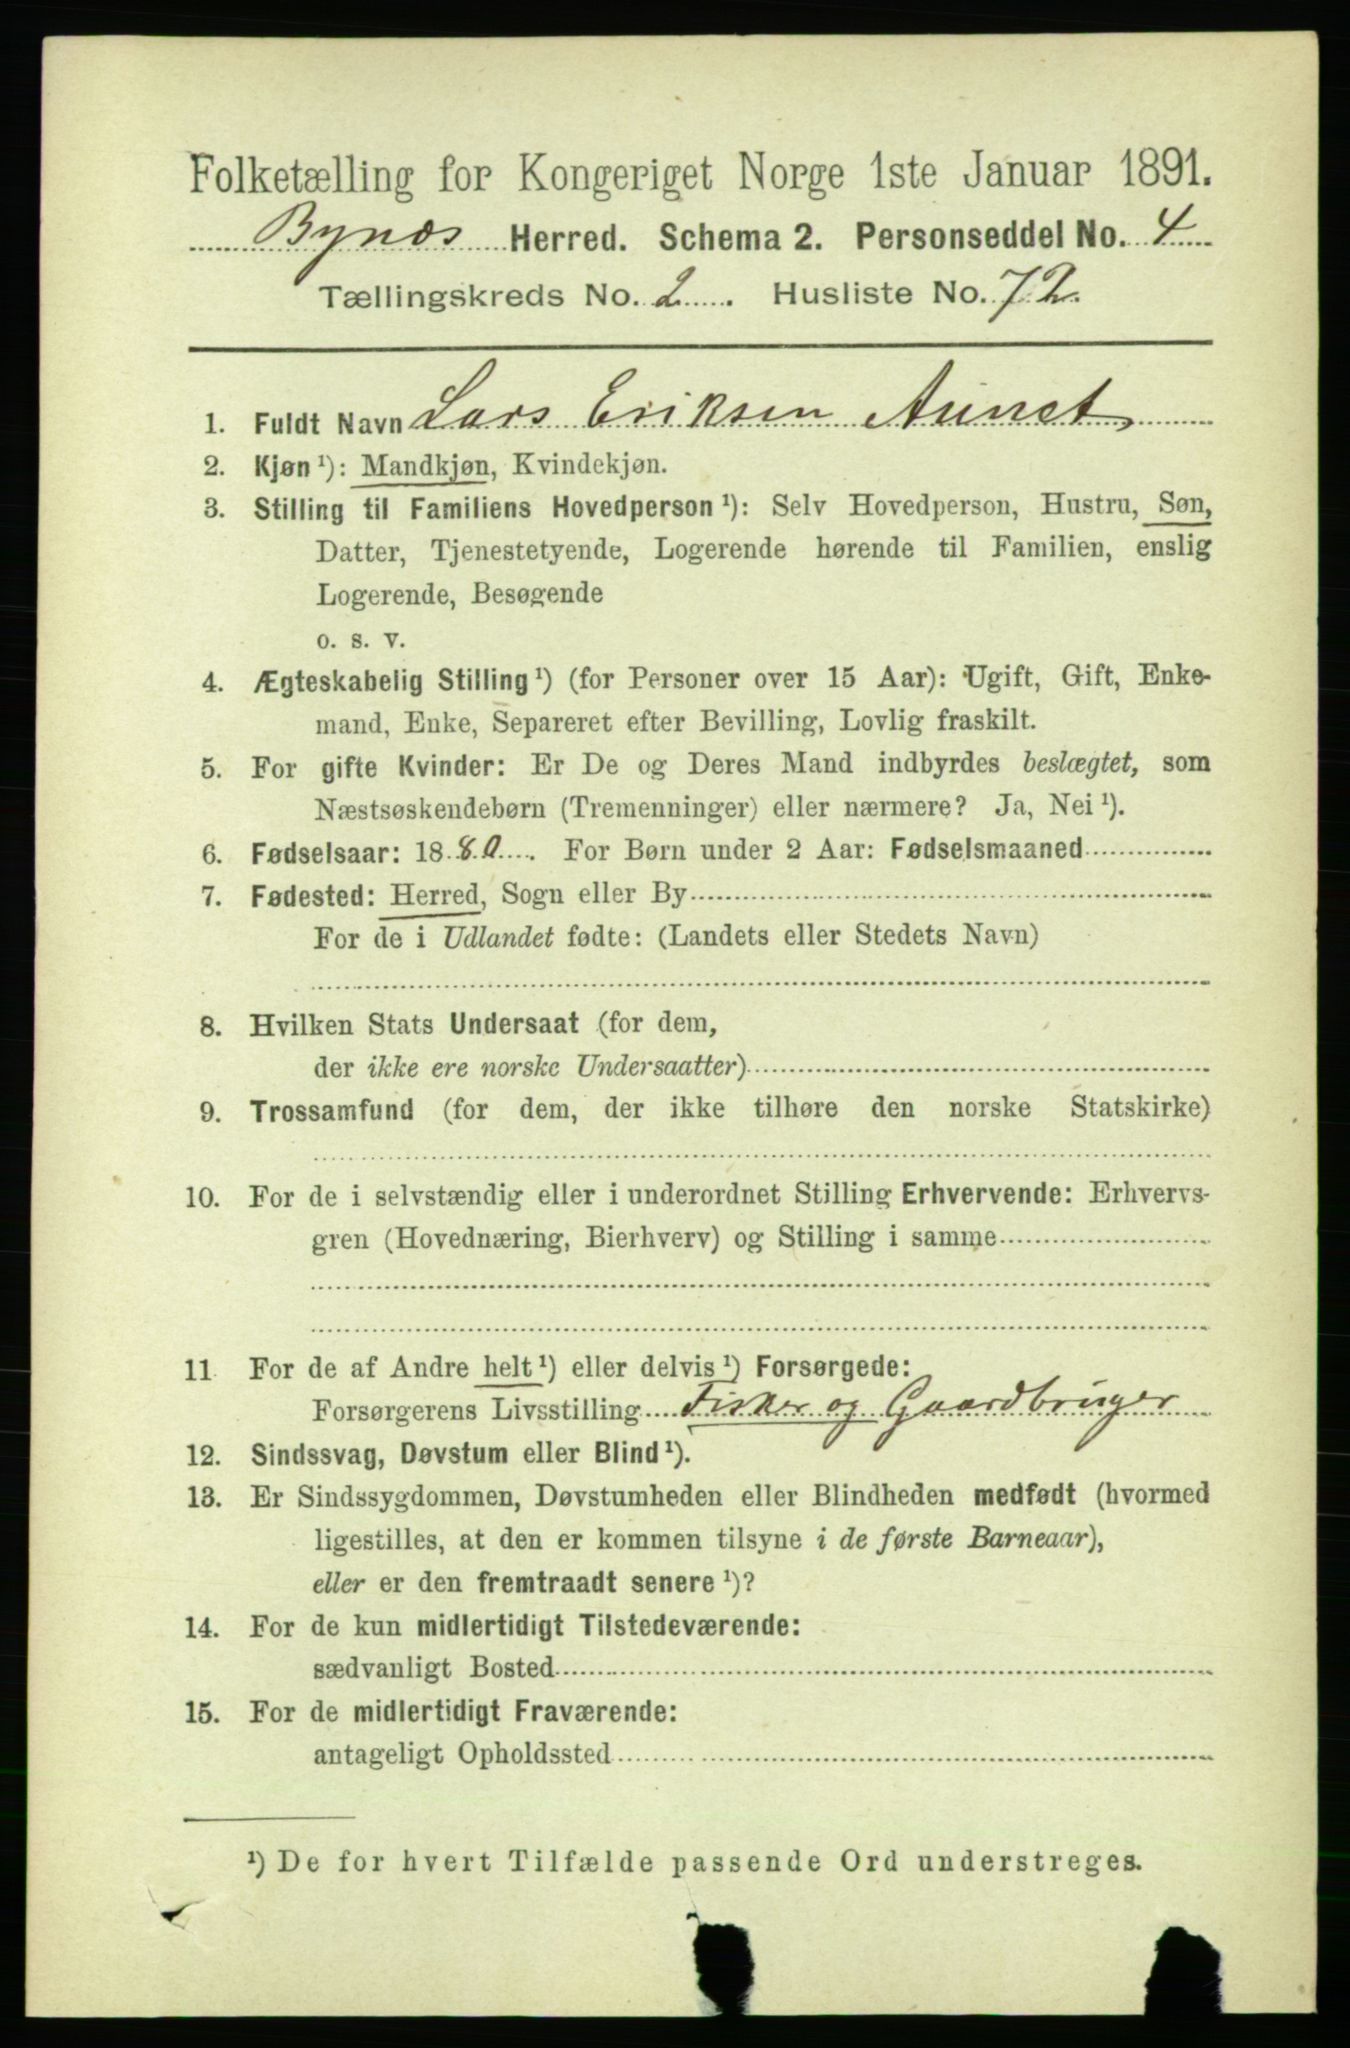 Folketælling for Kongeriget Norge 1ste Januar 1891.
Bynæs Herred. Schema 2. Personseddel No. 4
Tællingskreds No. 2. Husliste No. 72.
1. Fuldt Navn Lars Eriksen Aunet
2. Kjøn ¹): Mandkjøn, Kvindekjøn.
3. Stilling til Familiens Hovedperson ¹): Selv Hovedperson, Hustru, Søn,
Datter, Tjenestetyende, Logerende hørende til Familien, enslig
Logerende, Besøgende
o. s. v.
4. Ægteskabelig Stilling ¹) (for Personer over 15 Aar): Ugift, Gift, Enke-
mand, Enke, Separeret efter Bevilling, Lovlig fraskilt.
5. For gifte Kvinder: Er De og Deres Mand indbyrdes beslægtet, som
Næstsøskendebørn (Tremenninger) eller nærmere? Ja, Nei ¹).
6. Fødselsaar: 1880. For Børn under 2 Aar: Fødselsmaaned
7. Fødested: Herred, Sogn eller By
For de i Udlandet fødte: (Landets eller Stedets Navn)
8. Hvilken Stats Undersaat (for dem,
der ikke ere norske Undersaatter)
9. Trossamfund (for dem, der ikke tilhøre den norske Statskirke)
10. For de i selvstændig eller i underordnet Stilling Erhvervende: Erhvervs-
gren (Hovednæring, Bierhverv) og Stilling i samme
11 For de af Andre helt ¹) eller delvis ¹) Forsørgede:
Forsørgerens Livsstilling Fisker og Gaardbruger
12. Sindssvag, Døvstum eller Blind ¹).
13. Er Sindssygdommen, Døvstumheden eller Blindheden medfødt (hvormed
ligestilles, at den er kommen tilsyne i de første Barneaar),
eller er den fremtraadt senere ¹)?
14. For de kun midlertidigt Tilstedeværende:
sædvanligt Bosted
15. For de midlertidigt Fraværende:
antageligt Opholdssted
¹) De for hvert Tilfælde passende Ord understreges.